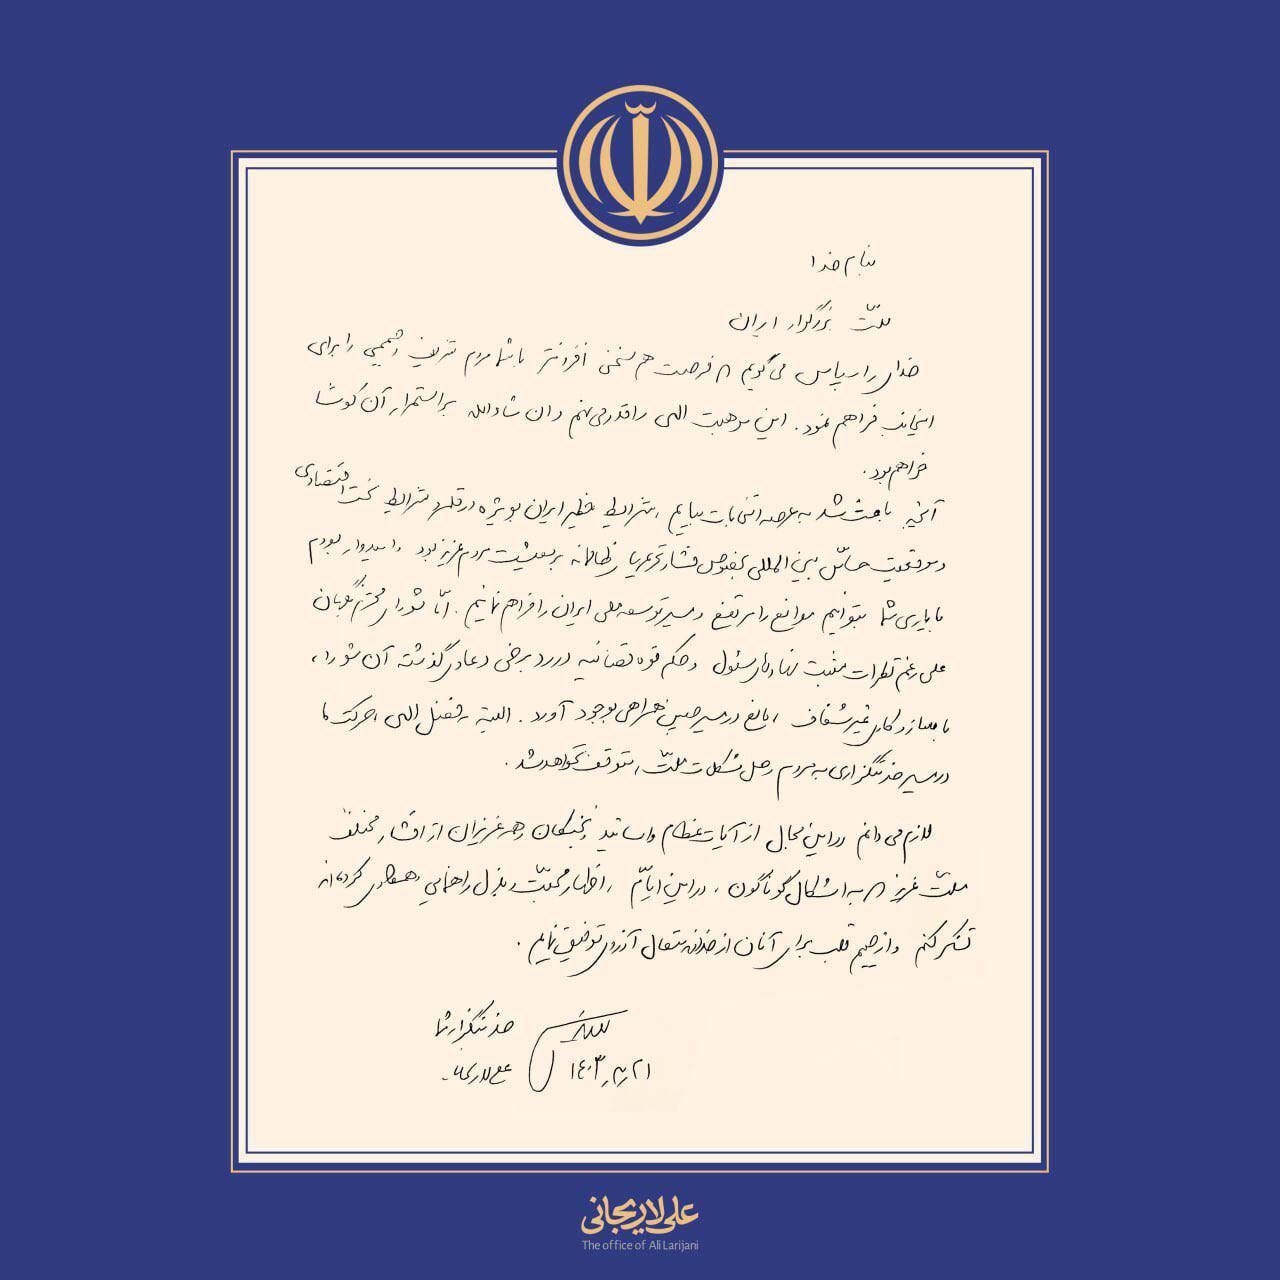 بنام خدا
ملّت بزرگوار ایران
خدای را سپاس می‌گویم که فرصت هم سخنی افزونتر با شما مردم شریف و صمیمی را برای
اینجانب فراهم نمود. این موهبت الهی را قدر می‌نهم و ان شاء الله بر استمرار آن کوشا
خواهم بود.
آنچه باعث شد به عرصه انتخابات بیایم، شرایط خطیر ایران بویژه در قلمرو شرایط سخت اقتصادی
و موقعیت حسّاس بین المللی بخصوص فشار تحریم‌های ظالمانه بر معیشت مردم عزیز بود و امیدوار بودم
با یاری شما بتوانیم موانع را مرتفع و مسیر توسعه ملی ایران را فراهم نمائیم. امّا شورای محترم نگهبان
علی رغم نظرات مثبت نهادهای مسئول و حکم قوه قضائیه در رد برخی دعاوی گذشته آن شورا،
با سازوکاری غیرشفاف، مانع در مسیر چنین همراهی بوجود آورد. البته به فضل الهی، حرکت ما
در مسیر خدمتگزاری به مردم و حل مشکلات ملّت، متوقف نخواهد شد.
لازم می دانم در این مجال از آیات عظام و اساتید و نخبگان و همه عزیزان از اقشار مختلف
ملّت عزیز که به اشکال گوناگون، در این ایّام، اظهار محبّت و بذل راهنمایی و همکاری کرده‌اند
تشکر کنم و از صمیم قلب برای آنان از خداوند متعال آرزوی توفیق نمایم.
خدمتگزار شما
علی لاریجانی
۱۴۰۳٫۳٫۲۱
علی لاریجانی
The office of Ali Larijani